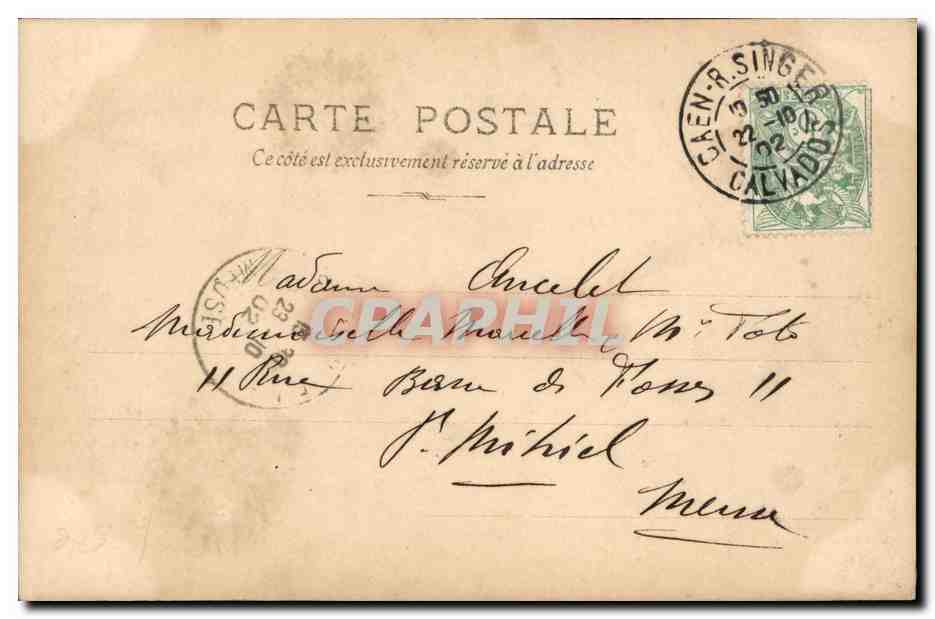 CARTE POSTALE
Ce côté est exclusivement réservé à l'adresse
CAEN - R. SINGER
50
22 -10
02
CALVADOS
MEUSE
23
02
CPARAMA
Madame Ancelet
Mademoiselle Marcelle, Mr Toto
11 Rue Basse des Fosses 11
St Mihiel
Meuse